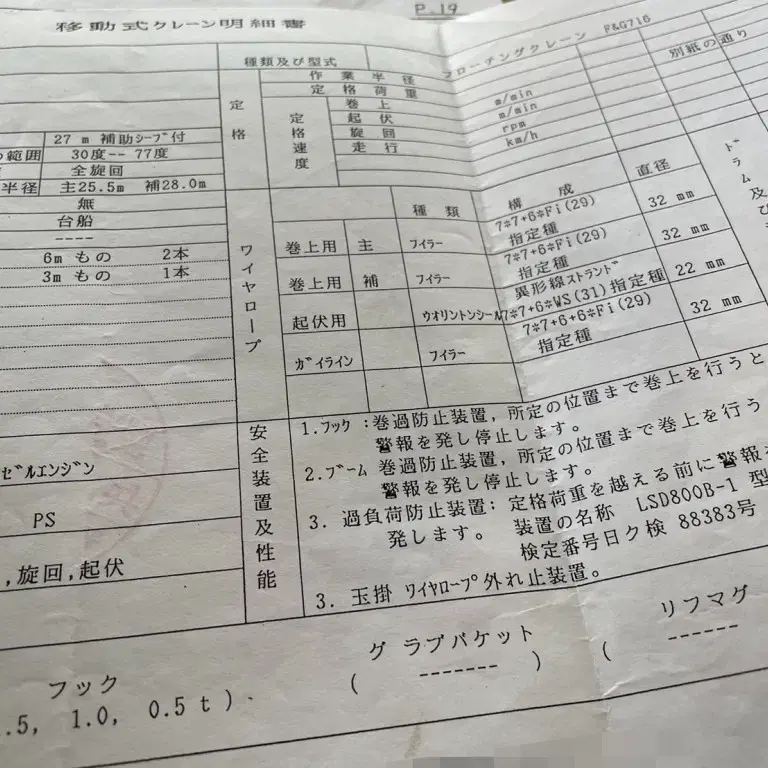 P.19
移動式クレーン明細書
種類及び型式 フローチングクレーン F&G716
作業半径 別紙の通り
定格荷重
定格
定格速度
巻上 m/min
起伏 m/min
旋回 rpm
走行 km/h
27 m 補助シーブ付
範囲 30度-- 77度
全旋回
半径 主25.5m 補28.0m
無
台船
----
6m もの 2本
3m もの 1本
ワイヤロープ
種類 構成 直径
巻上用 主 フィラー 7*7+6*Fi(29) 指定種 32 mm
巻上用 補 フィラー 7*7+6*Fi(29) 指定種 32 mm
起伏用 ウオリントンシール 異形線ストランド 7*7+6*WS(31)指定種 22 mm
ガイライン フィラー 7*7+6+6*Fi(29) 指定種 32 mm
ドラム及び
ゼルエンジン
PS
,旋回,起伏
安全装置及性能
1.フック :巻過防止装置, 所定の位置まで巻上を行うと
警報を発し停止します。
2.ブーム 巻過防止装置, 所定の位置まで巻上を行う
警報を発し停止します。
3. 過負荷防止装置: 定格荷重を越える前に警報を
発します。 装置の名称 LSD800B-1 型
検定番号日ク検 88383号
3. 玉掛 ワイヤロープ外れ止装置。
フック グラブバケット リフマグ
.5, 1.0, 0.5t). ( ------- ) ( ------